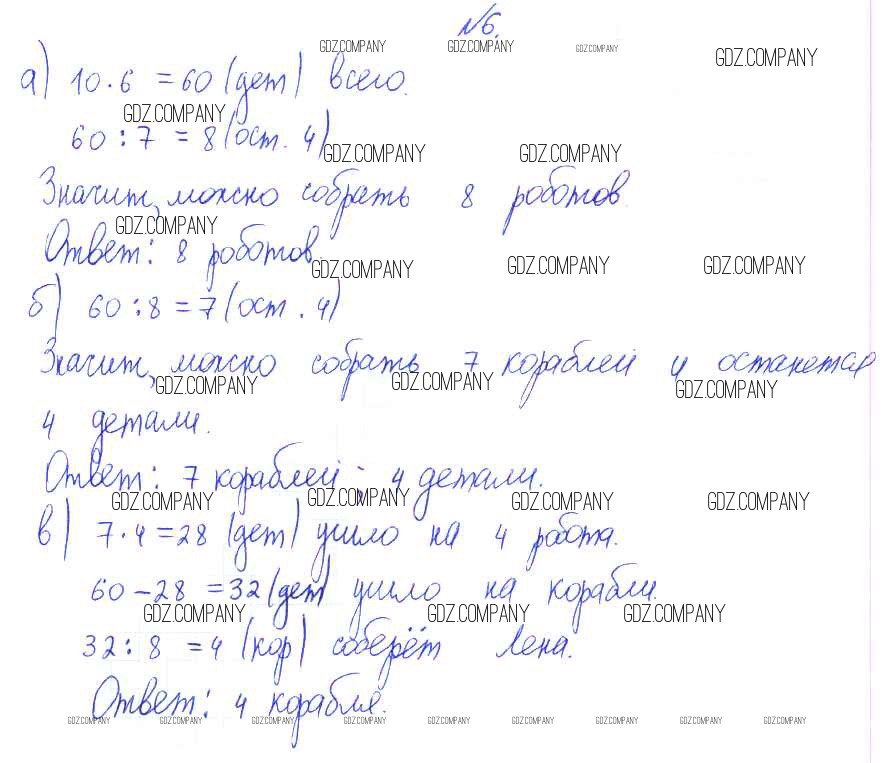 №6.
GDZ.COMPANY GDZ.COMPANY GDZ.COMPANY GDZ.COMPANY
а) 10·6 = 60 (дет) всего.
GDZ.COMPANY
60 : 7 = 8 (ост. 4)
GDZ.COMPANY GDZ.COMPANY
Значит, можно собрать 8 роботов.
GDZ.COMPANY
Ответ: 8 роботов.
GDZ.COMPANY GDZ.COMPANY GDZ.COMPANY
б) 60 : 8 = 7 (ост. 4)
Значит, можно собрать 7 кораблей и останется
GDZ.COMPANY GDZ.COMPANY GDZ.COMPANY
4 детали.
Ответ: 7 кораблей; 4 детали.
GDZ.COMPANY GDZ.COMPANY GDZ.COMPANY GDZ.COMPANY
в) 7·4 = 28 (дет) ушло на 4 робота.
60 – 28 = 32 (дет) ушло на корабли.
GDZ.COMPANY GDZ.COMPANY GDZ.COMPANY
32 : 8 = 4 (кор) соберёт Лена.
Ответ: 4 корабля.
GDZ.COMPANY GDZ.COMPANY GDZ.COMPANY GDZ.COMPANY GDZ.COMPANY GDZ.COMPANY GDZ.COMPANY GDZ.COMPANY GDZ.COMPANY